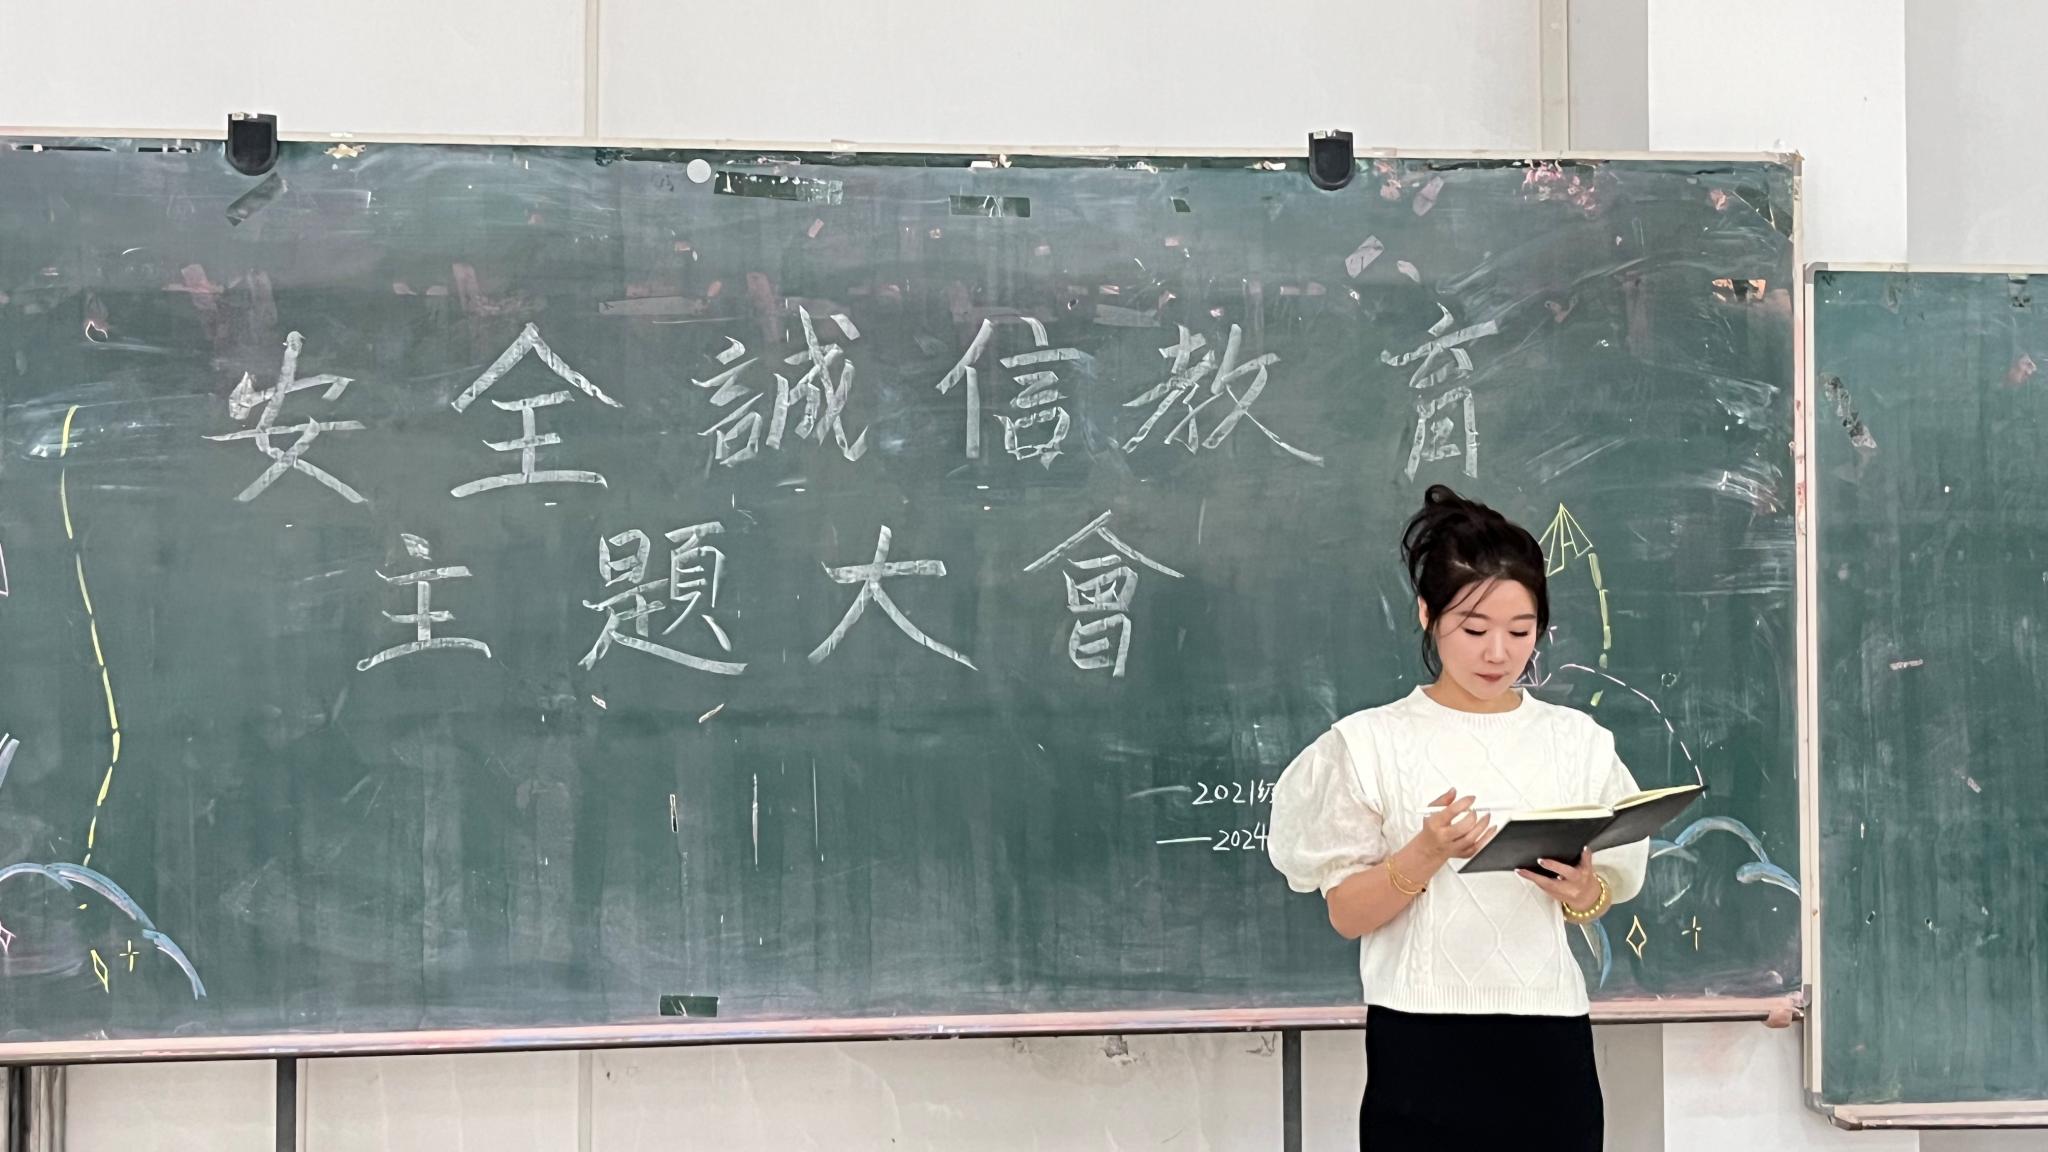 安全誠信教育
主題大會
2021级
——2024